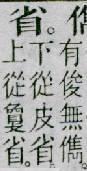 有俊無儁。
省。
下從皮省
上從敻省。